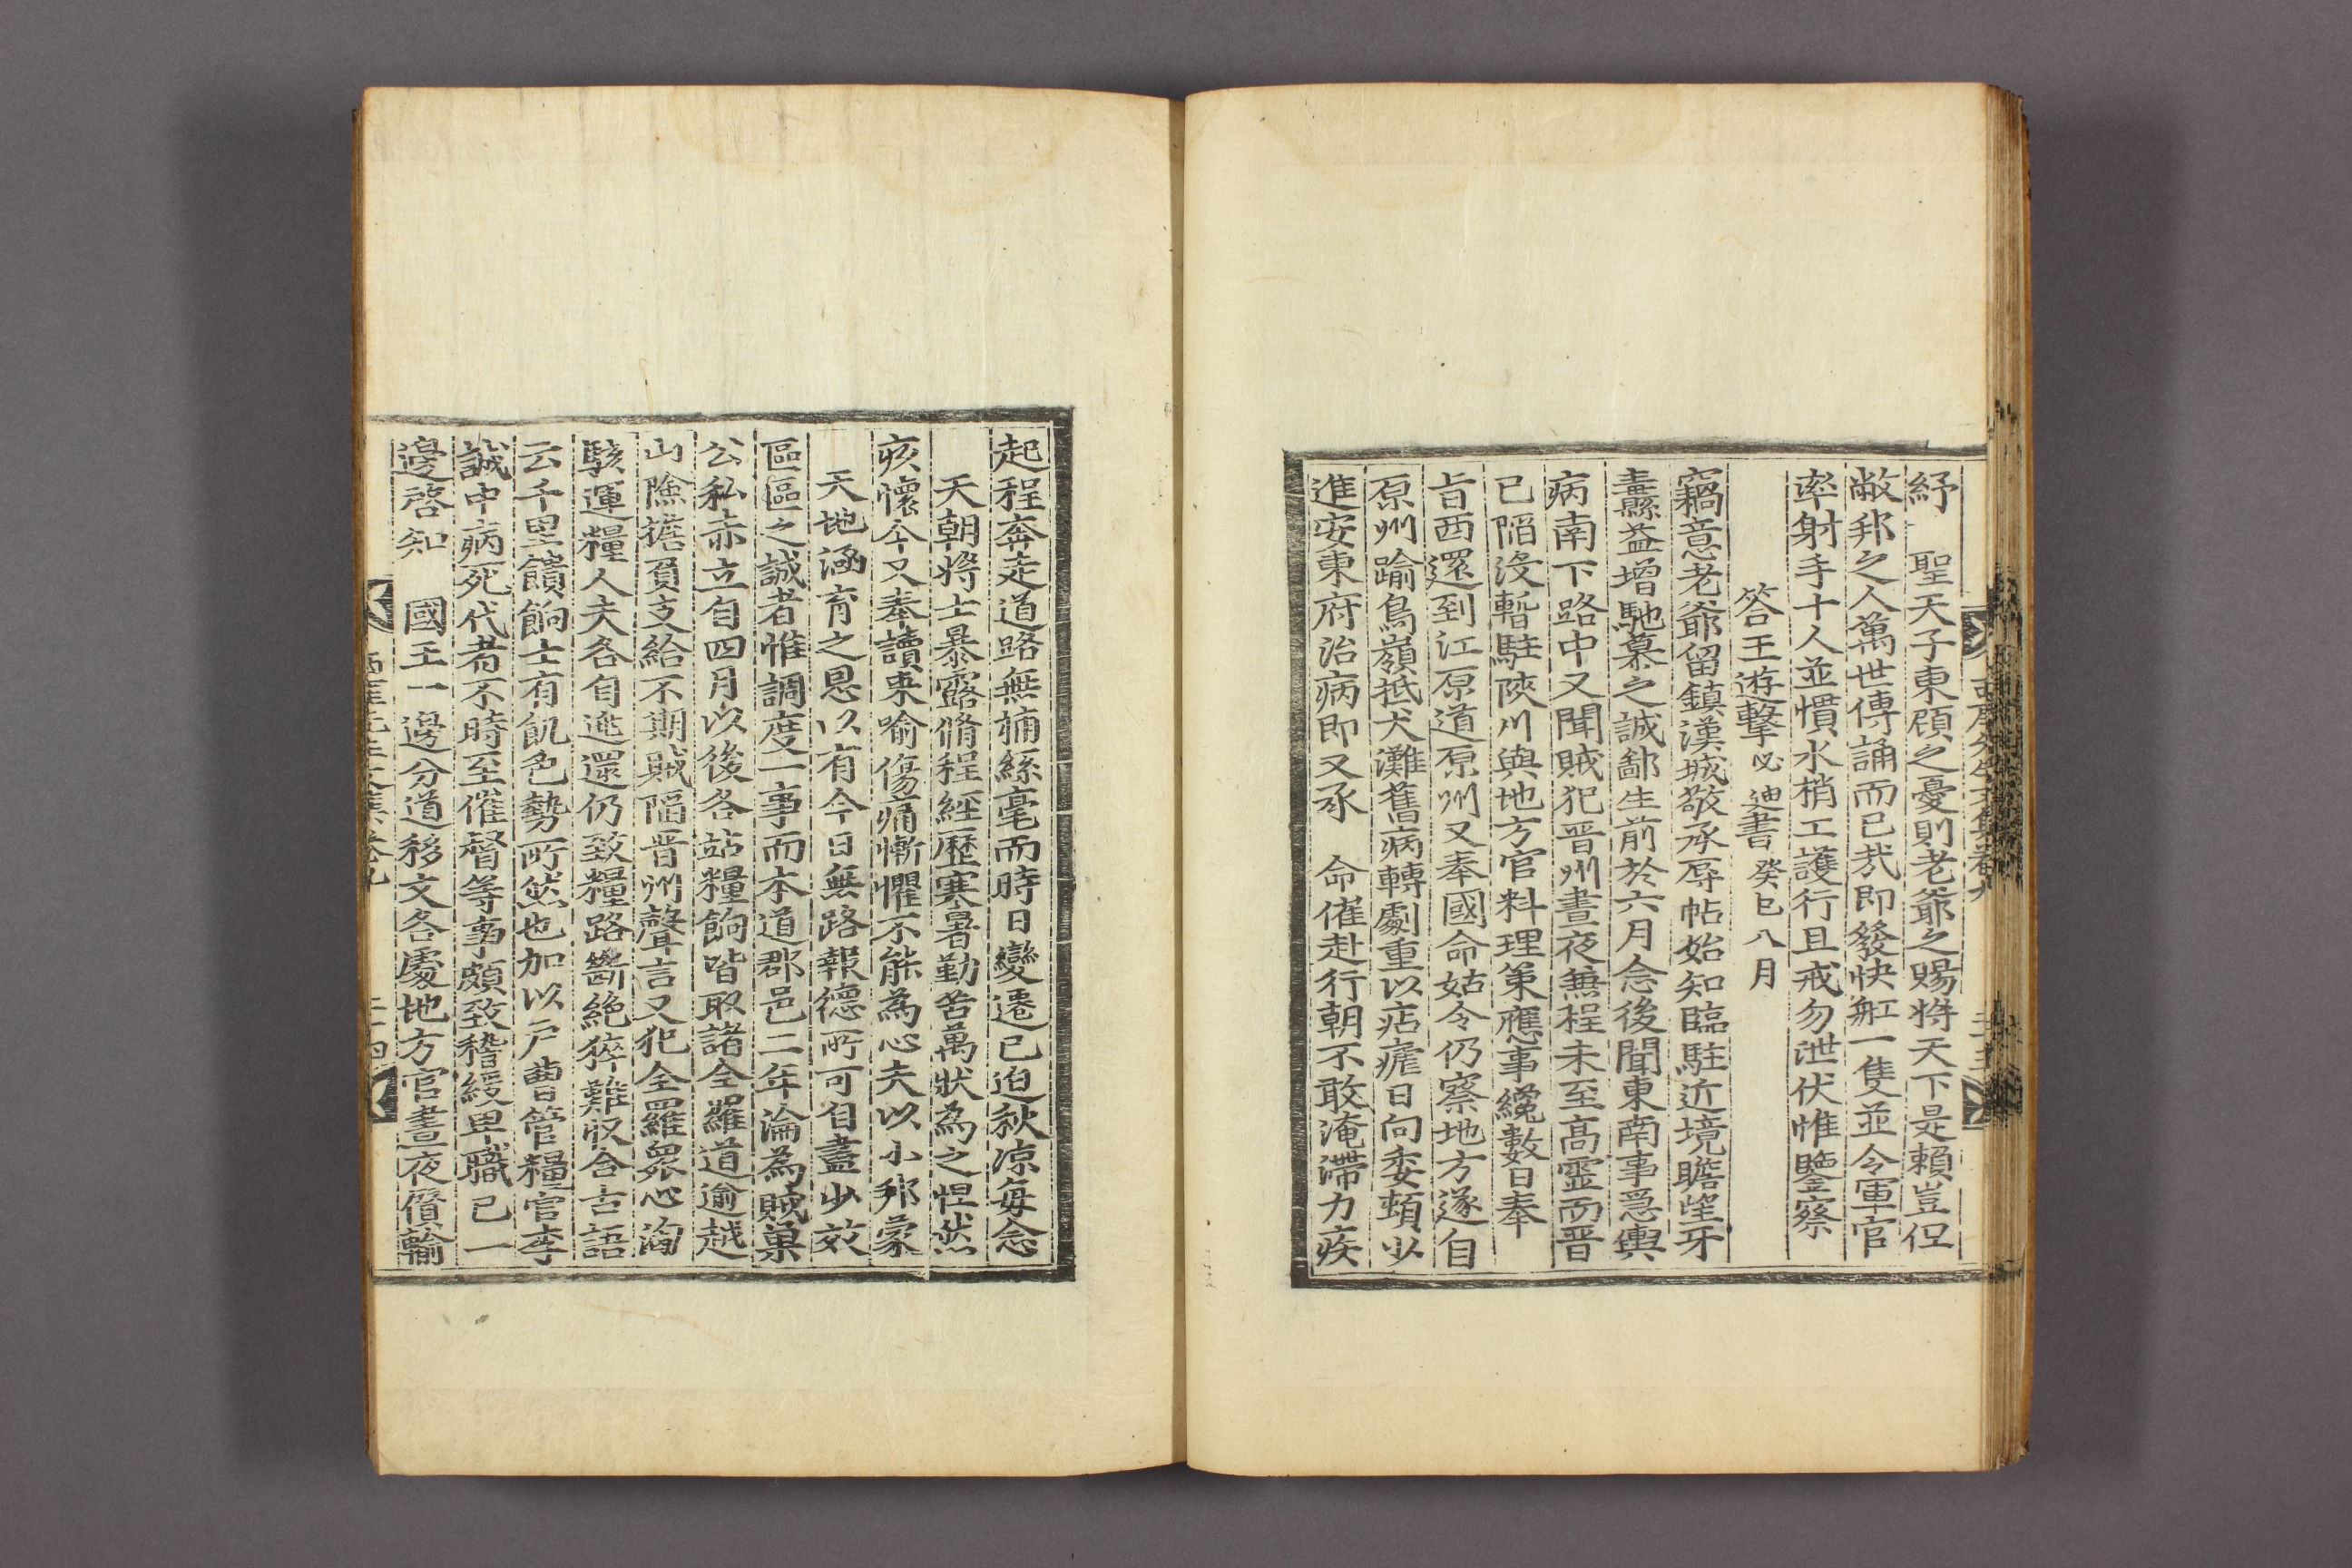 西厓先生文集卷九
紓 聖天子東顧之憂則老爺之賜將天下是賴豈但
敝邦之人萬世傳誦而已哉即發快船一隻並令軍官
率射手十人並慣水梢工護行且戒勿泄伏惟鑒察
答王遊擊必迪書 癸巳八月
竊意老爺留鎮漢城敬承辱帖始知臨駐近境瞻望牙
纛益增馳慕之誠鄙生前於六月念後聞東南事急輿
病南下路中又聞賊犯晋州晝夜兼程未至高靈而晋
已陷沒暫駐陜川與地方官料理策應事纔數日奉
旨西還到江原道原州又奉國命姑令仍察地方遂自
原州踰鳥嶺抵犬灘舊病轉劇重以痁瘧日向委頓少
進安東府治病即又承 命催赴行朝不敢淹滯力疾
起程奔走道路無補絲毫而時日變遷已迫秋凉每念
天朝將士暴露脩程經歷寒暑勤苦萬狀為之怛然
疚懷今又奉讀來喻傷痛慚懼不能為心夫以小邦蒙
天地涵育之恩以有今日無路報德所可自盡少效
區區之誠者惟調度一事而本道郡邑二年淪為賊巢
公私赤立自四月以後各站糧餉皆取諸全羅道逾越
山險擔負支給不期賊陷晋州聲言又犯全羅衆心洶
駭運糧人夫各自逃還仍致糧路斷絶猝難收合古語
云千里饋餉士有飢色勢所然也加以戶曹管糧官李
誠中病死代者不時至催督等事頗致稽緩卑職已一
邊啓知 國王一邊分道移文各處地方官晝夜儧輸
西厓先生文集卷九 二十四